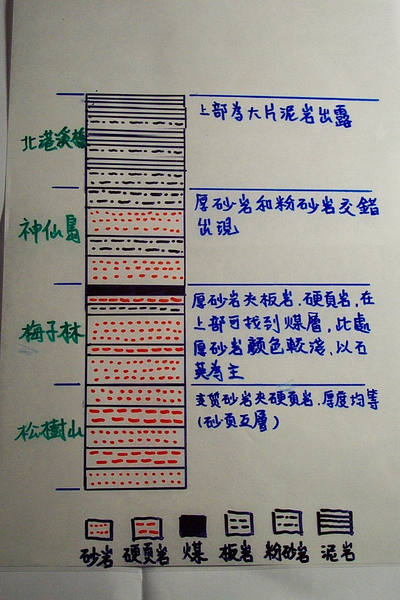 北港溪橋
上部為大片泥岩出露
神仙島
厚砂岩和粉砂岩交錯
出現
梅子林
厚砂岩夾板岩、硬頁岩,在
上部可找到煤層,此處
厚砂岩顏色較淺,以石
英為主
松樹山
主質砂岩夾硬頁岩,厚度均等
(砂頁互層)
砂岩 硬頁岩 煤 板岩 粉砂岩 泥岩